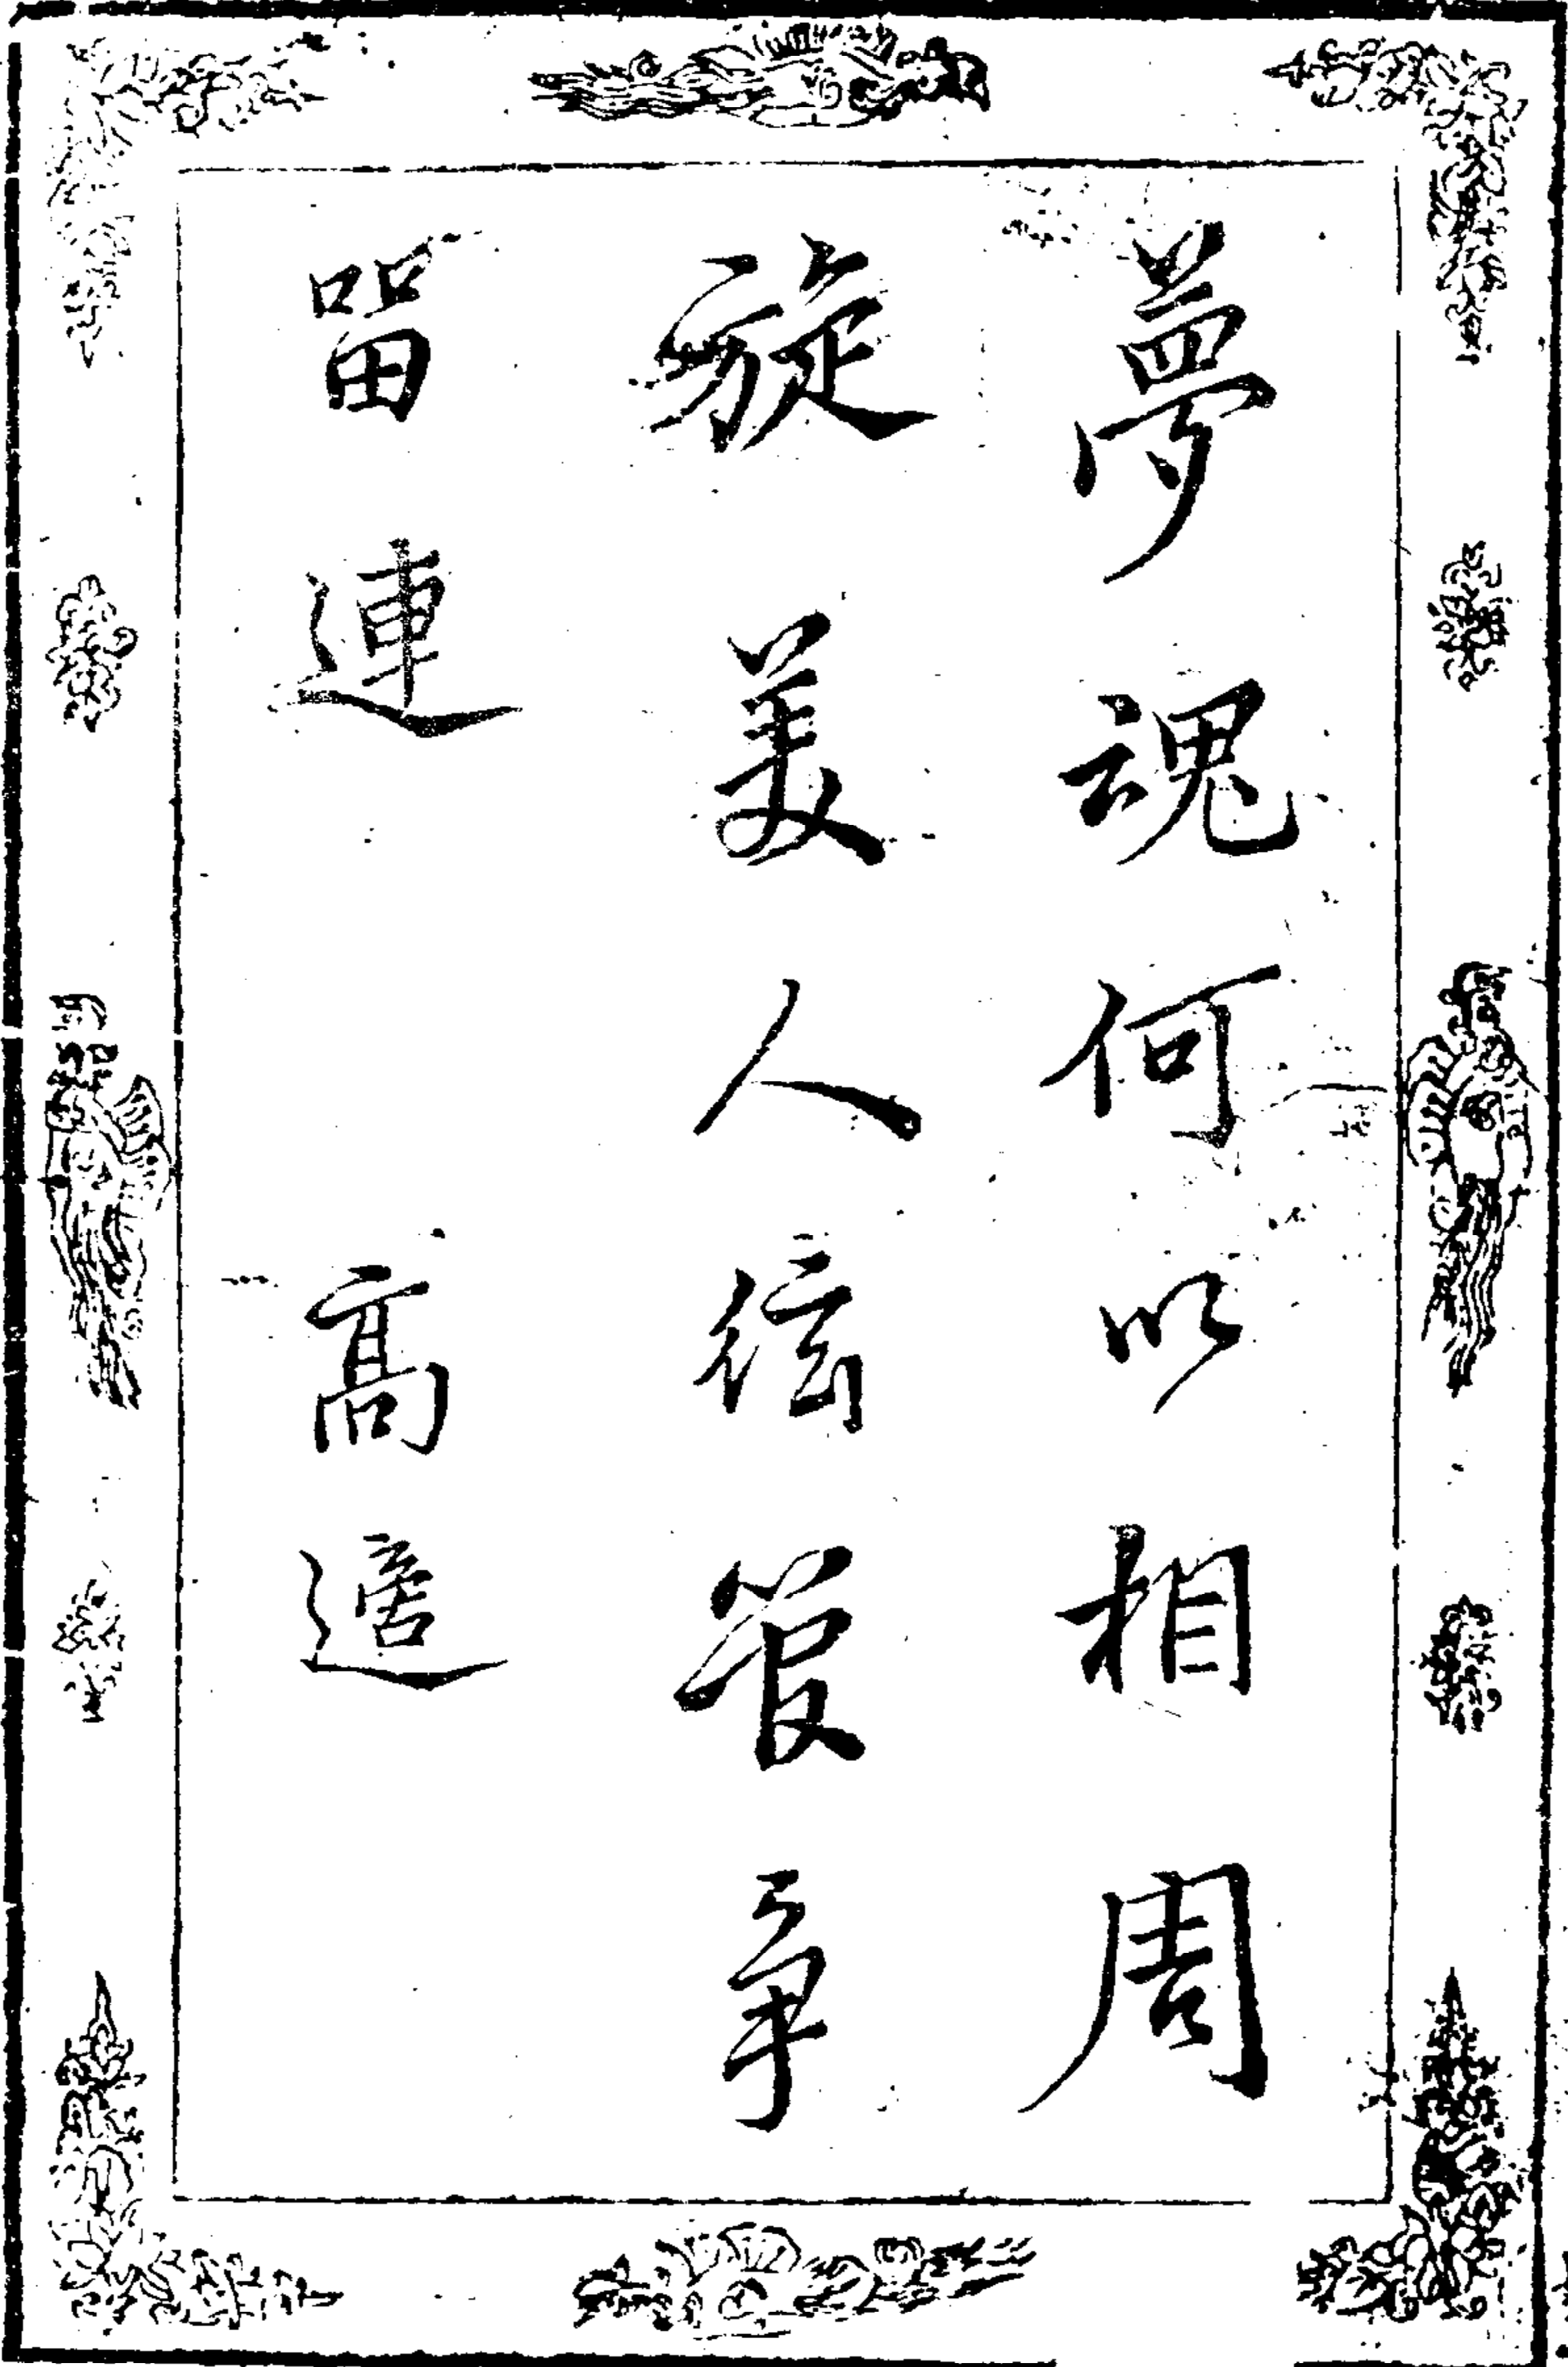 夢魂何以相周
旋美人絃管爭
畱連 高適